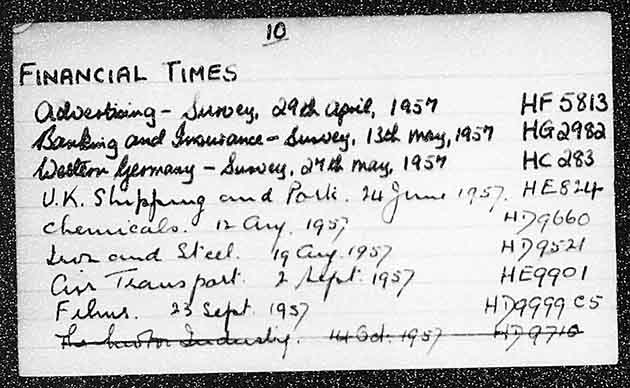 10
FINANCIAL TIMES
Advertising - Survey, 29th April, 1957 HF 5813
Banking and Insurance - Survey, 13th May, 1957 HG2982
Western Germany - Survey, 27th May, 1957 HC 283
U.K. Shipping and Ports. 24 June 1957. HE824
Chemicals. 12 Aug. 1957 HD9660
Iron and Steel. 19 Aug. 1957 HD9521
Air Transport. 2 Sept. 1957 HE9901
Films. 23 Sept. 1957 HD9999 C5
The Motor Industry. 14 Oct. 1957 HD9710